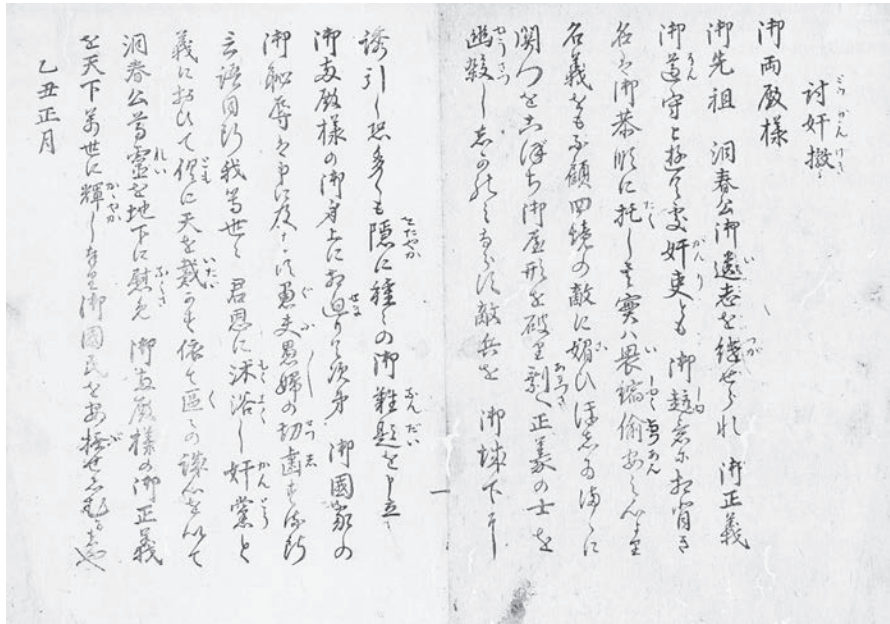 討奸檄
御両殿様
御先祖 洞春公御遺志を継せられ 御正義
御遵守被遊候処奸吏とも 御趣意に相背き
名は御恭順に托し其実ハ畏縮偸安之心より
名義をも不顧四境の敵に媚ひほしゐまゝに
関門をこほち御屋形を破り剰へ正義の士を
幽殺ししかのみならす敵兵を 御城下ニ
誘引し恐多くも隠に種々の御難題を申立
御両殿様の御身上にお迫り候次第 御国家の
御恥辱は申に及ハす愚夫愚婦の切歯する所
言語同断我等世々 君恩に沐浴し奸党と
義におひて倶に天を戴かす依て区々の誠心を以て
洞春公尊霊を地下に慰め 御両殿様の御正義
を天下万世に輝し奉り御国民を安撫せしむる者也
乙丑正月